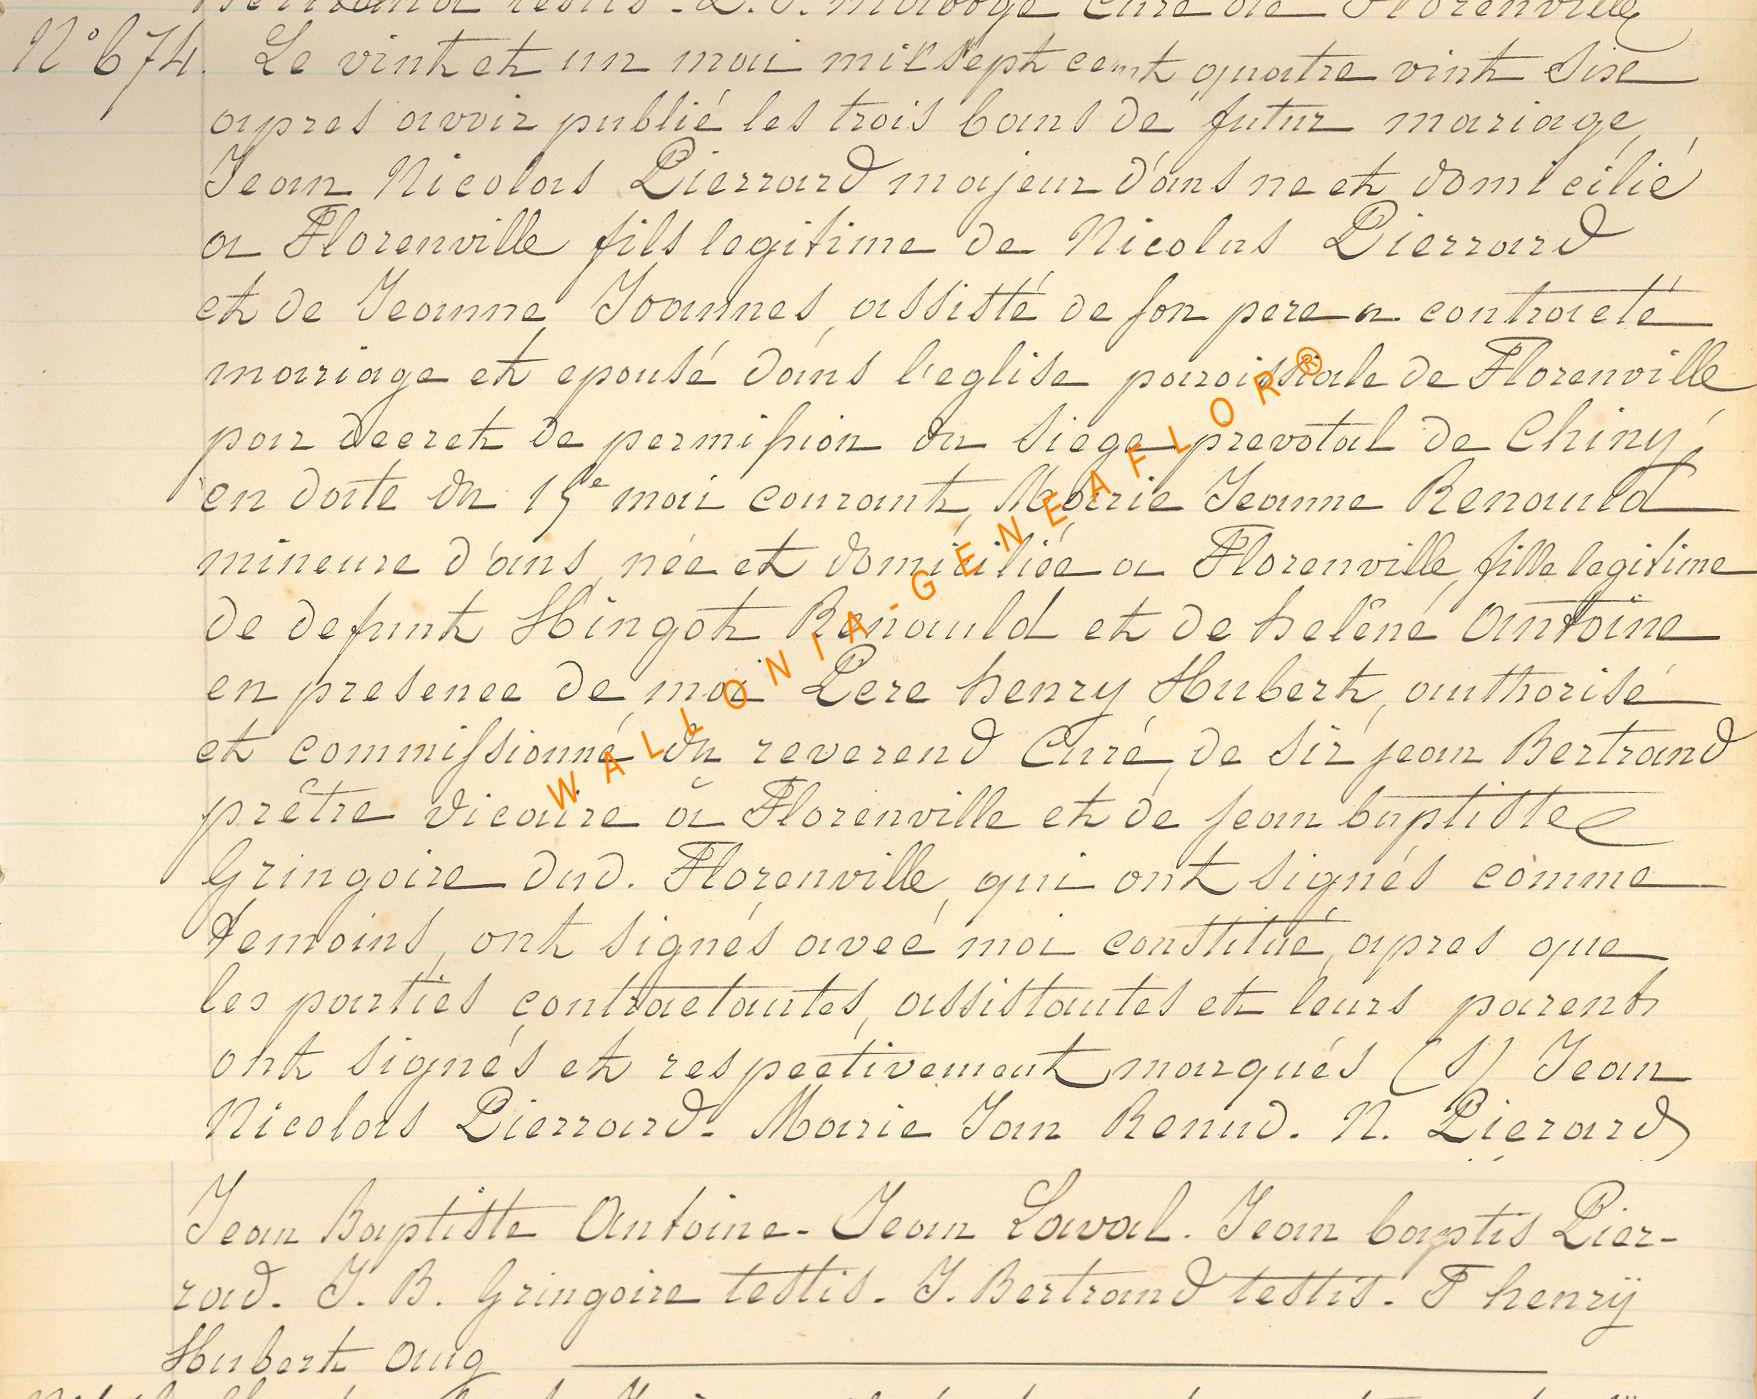 Bertrand testis - L. J. Curé de Florenville
N° 674. Le vinht et un mai mil sept cent quatre vinht sise
apres avoir publié les trois bans de futur mariage,
Jean Nicolas Pierrard majeur d'ans ne et domicilié
a Florenville fils legitime de Nicolas Pierrard
et de Jeanne Joannes, assisté de son pere a contracté
mariage et epousé dans l'eglise paroissiale de Florenville
par decret de permission du siege prevotal de Chiny,
en date du 15e mai courant, Marie Jeanne Renauld
mineure d'ans, née et domiciliée a Florenville, fille legitime
de defunt Hingot Renauld et de helêne Antoine
en presence de moi Pere henry Hubert, authorisé
et commissionné du reverend Curé, de sir jean Bertrand
prêtre vicaire à Florenville et de jean baptiste
Gringoire dud. Florenville, qui ont signés comme
temoins, ont signés aveé moi constitué, apres que
les parties contractantes, assistantes et leurs parents
ont signés et respectivement marqués (S) Jean
Nicolas Pierrard. Marie Jan Renud. N. Pierard
Jean Baptiste Antoine - Jean Laval. Jean baptis Pier-
rad. J. B. Gringoire testis. J. Bertrand testis. F henrÿ
Hubert Aug
WALLONIA-GENEAFLOR®